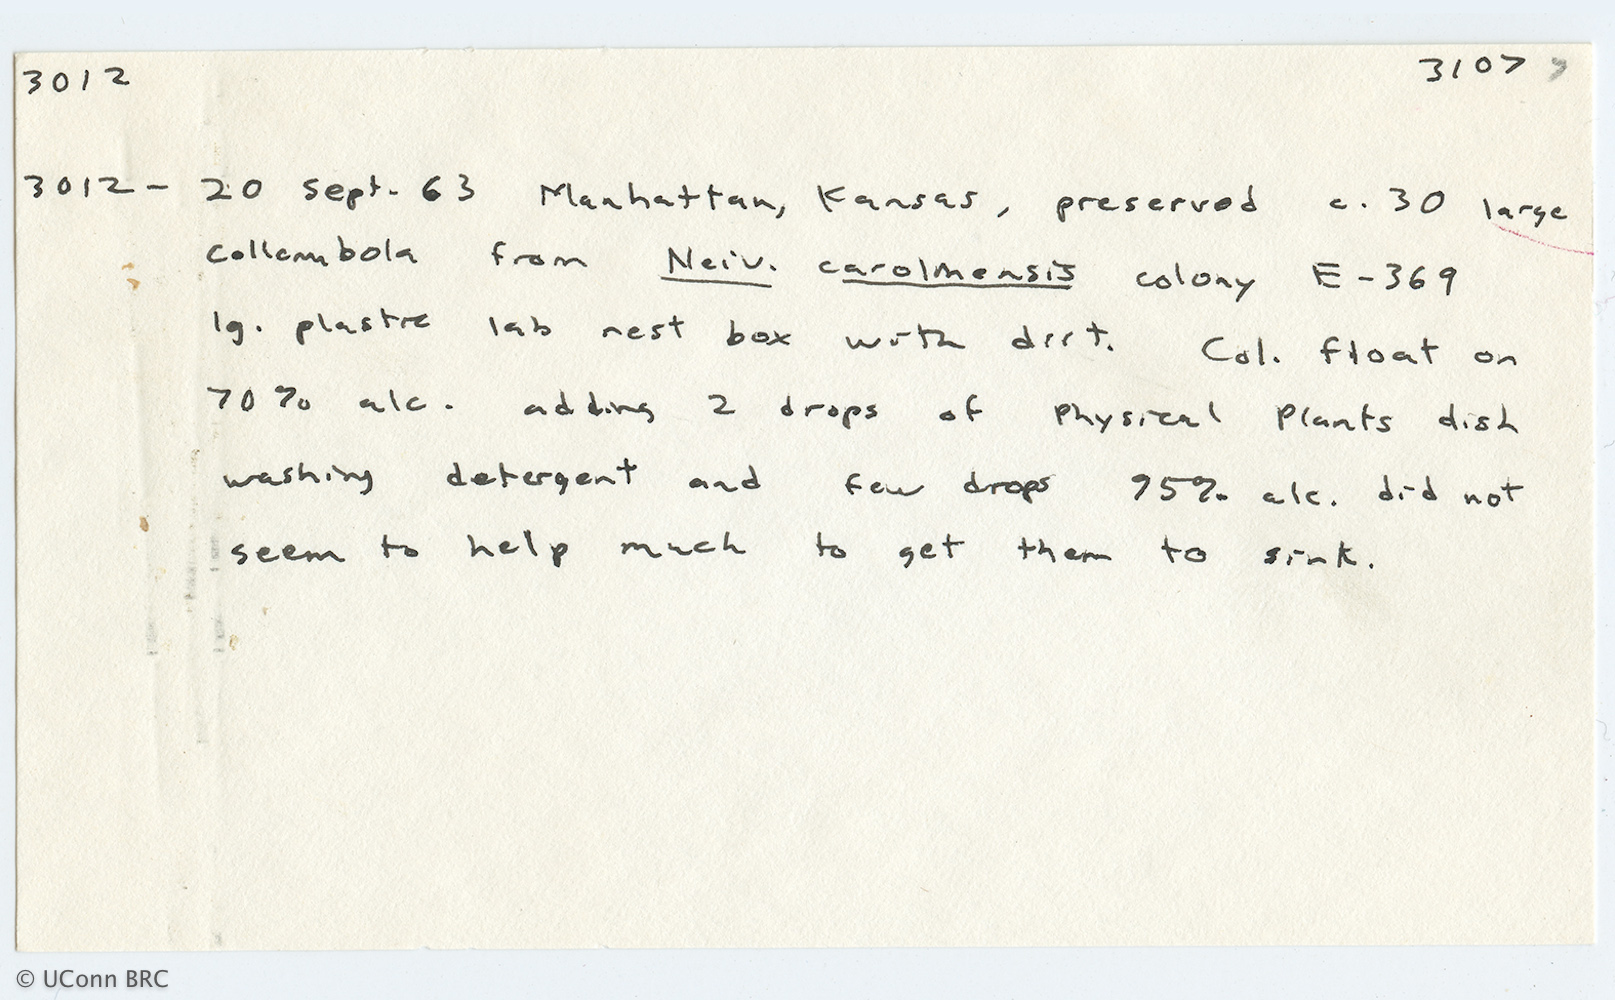 3012 3107
3012 - 20 Sept. 63 Manhattan, Kansas, preserved c. 30 large
collembola from Neiv. carolinensis colony E-369
lg. plastic lab nest box with dirt. Col. float on
70% alc. adding 2 drops of Physical Plants dish
washing detergent and few drops 95% alc. did not
seem to help much to get them to sink.
© UConn BRC